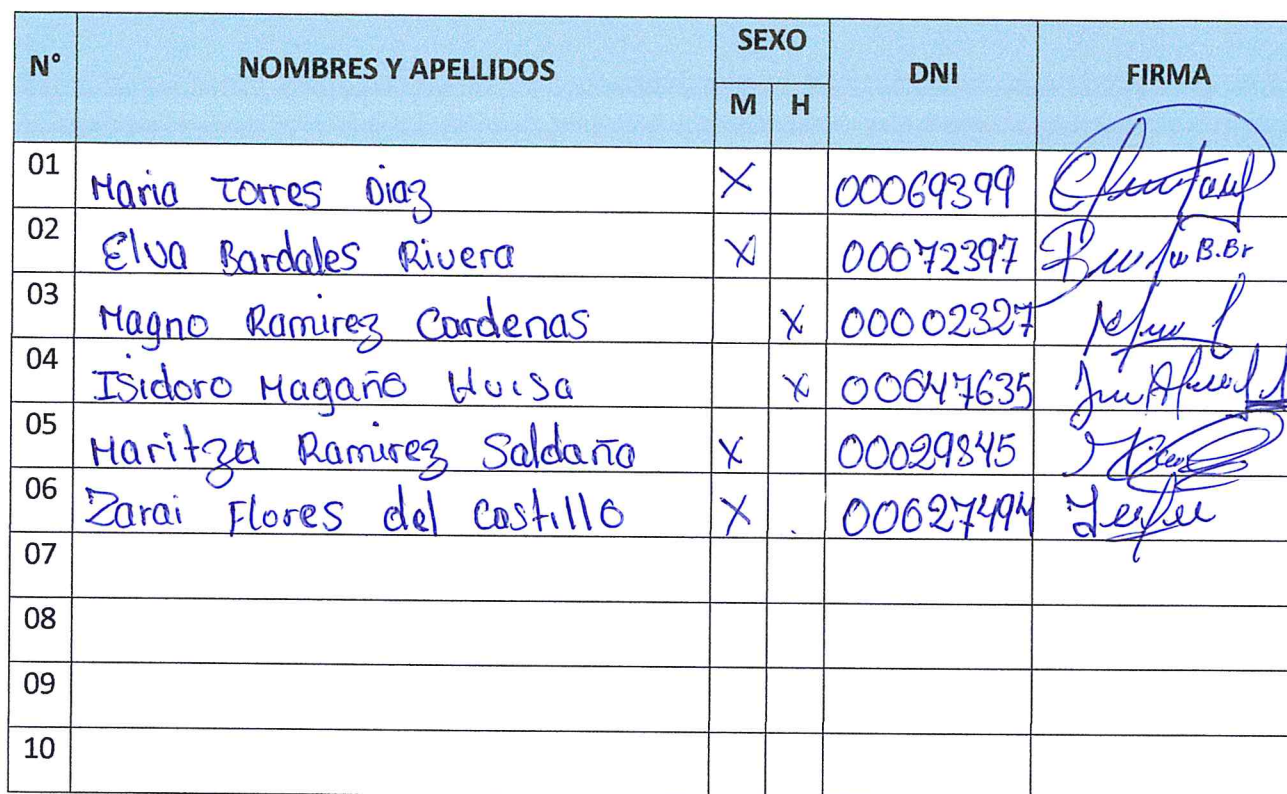 N° NOMBRES Y APELLIDOS SEXO DNI FIRMA
M H
01 Maria Torres Diaz X 00069399
02 Elva Bardales Rivera X 00072397 B.Br
03 Magno Ramirez Cardenas X 00002327
04 Isidoro Magaño Huisa X 00047635
05 Maritza Ramirez Saldaña X 00029845
06 Zarai Flores del Castillo X 00027494
07
08
09
10